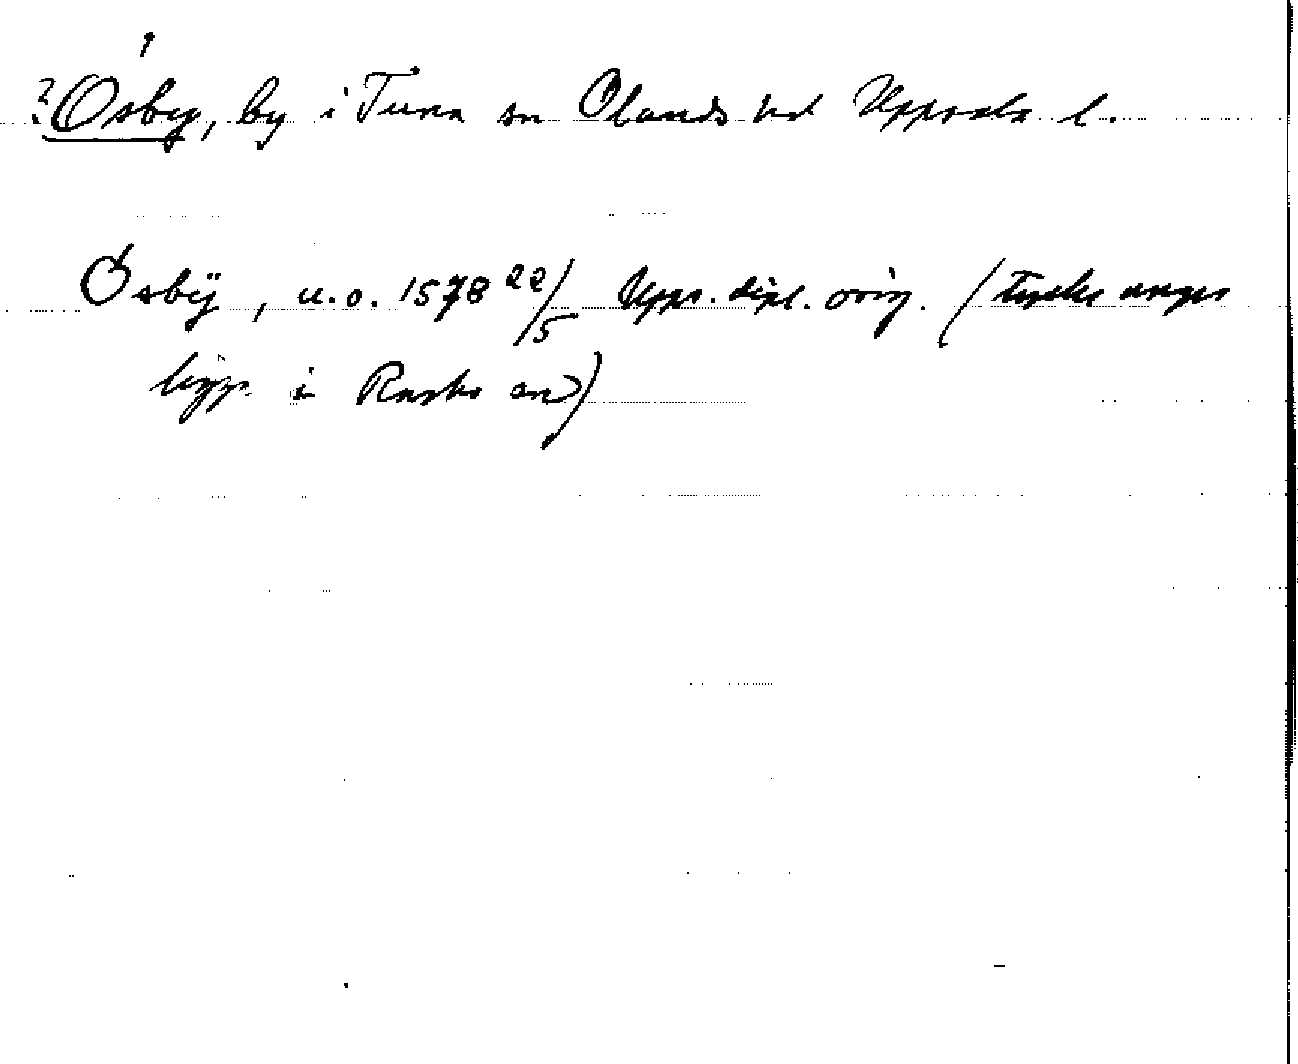 ? Ösby, by i Tuna sn Olands hd Uppsala l.
Ösbÿ, u.o. 1578 22/5 Upps. dipl. orig. (tyckes anges
ligga i Rasbo sn)